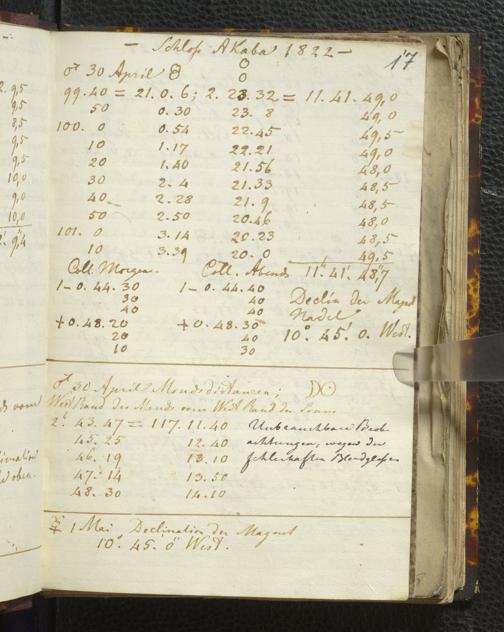 2. 9,5
9,5
8,5
9,5
9,5
10,0
9,0
10,0
9,4
– Schloss Akaba 1822 –
17
♂ 30 April
99.40 = 21. 0. 6; 2. 23. 32 = 11. 41. 49,0
50 0.30 23. 8 49,0
100. 0 0.54 22.45 49,5
10 1.17 22.21 49,0
20 1.40 21.56 48,0
30 2. 4 21.33 48,5
40 2.28 21. 9 48,5
50 2.50 20.46 48,0
101. 0 3.14 20.23 48,5
10 3.39 20. 0 49,5
Coll. Morgens. Coll. Abends 11. 41. 48,7
1 – 0. 44. 30 1 – 0. 44. 40
30 40 Declin der Magnet
40 40 Nadel
+ 0. 48. 20 + 0. 48. 35 10°. 45'. 0. West.
20 40
10 30
♂ 30 April Mondsdistanzen; ☽☉
West Rand des Monds vom West Rand der Sonne
2. 43. 47 = 117. 11. 40 Unbrauchbare Beob-
45. 25 12. 40 achtungen, wegen der
46. 19 13. 10 fehlerhaften Blendgläser
47. 14 13. 50
48. 30 14. 10
☿ 1 Mai Declination der Magnet
10°. 45'. 0" West.